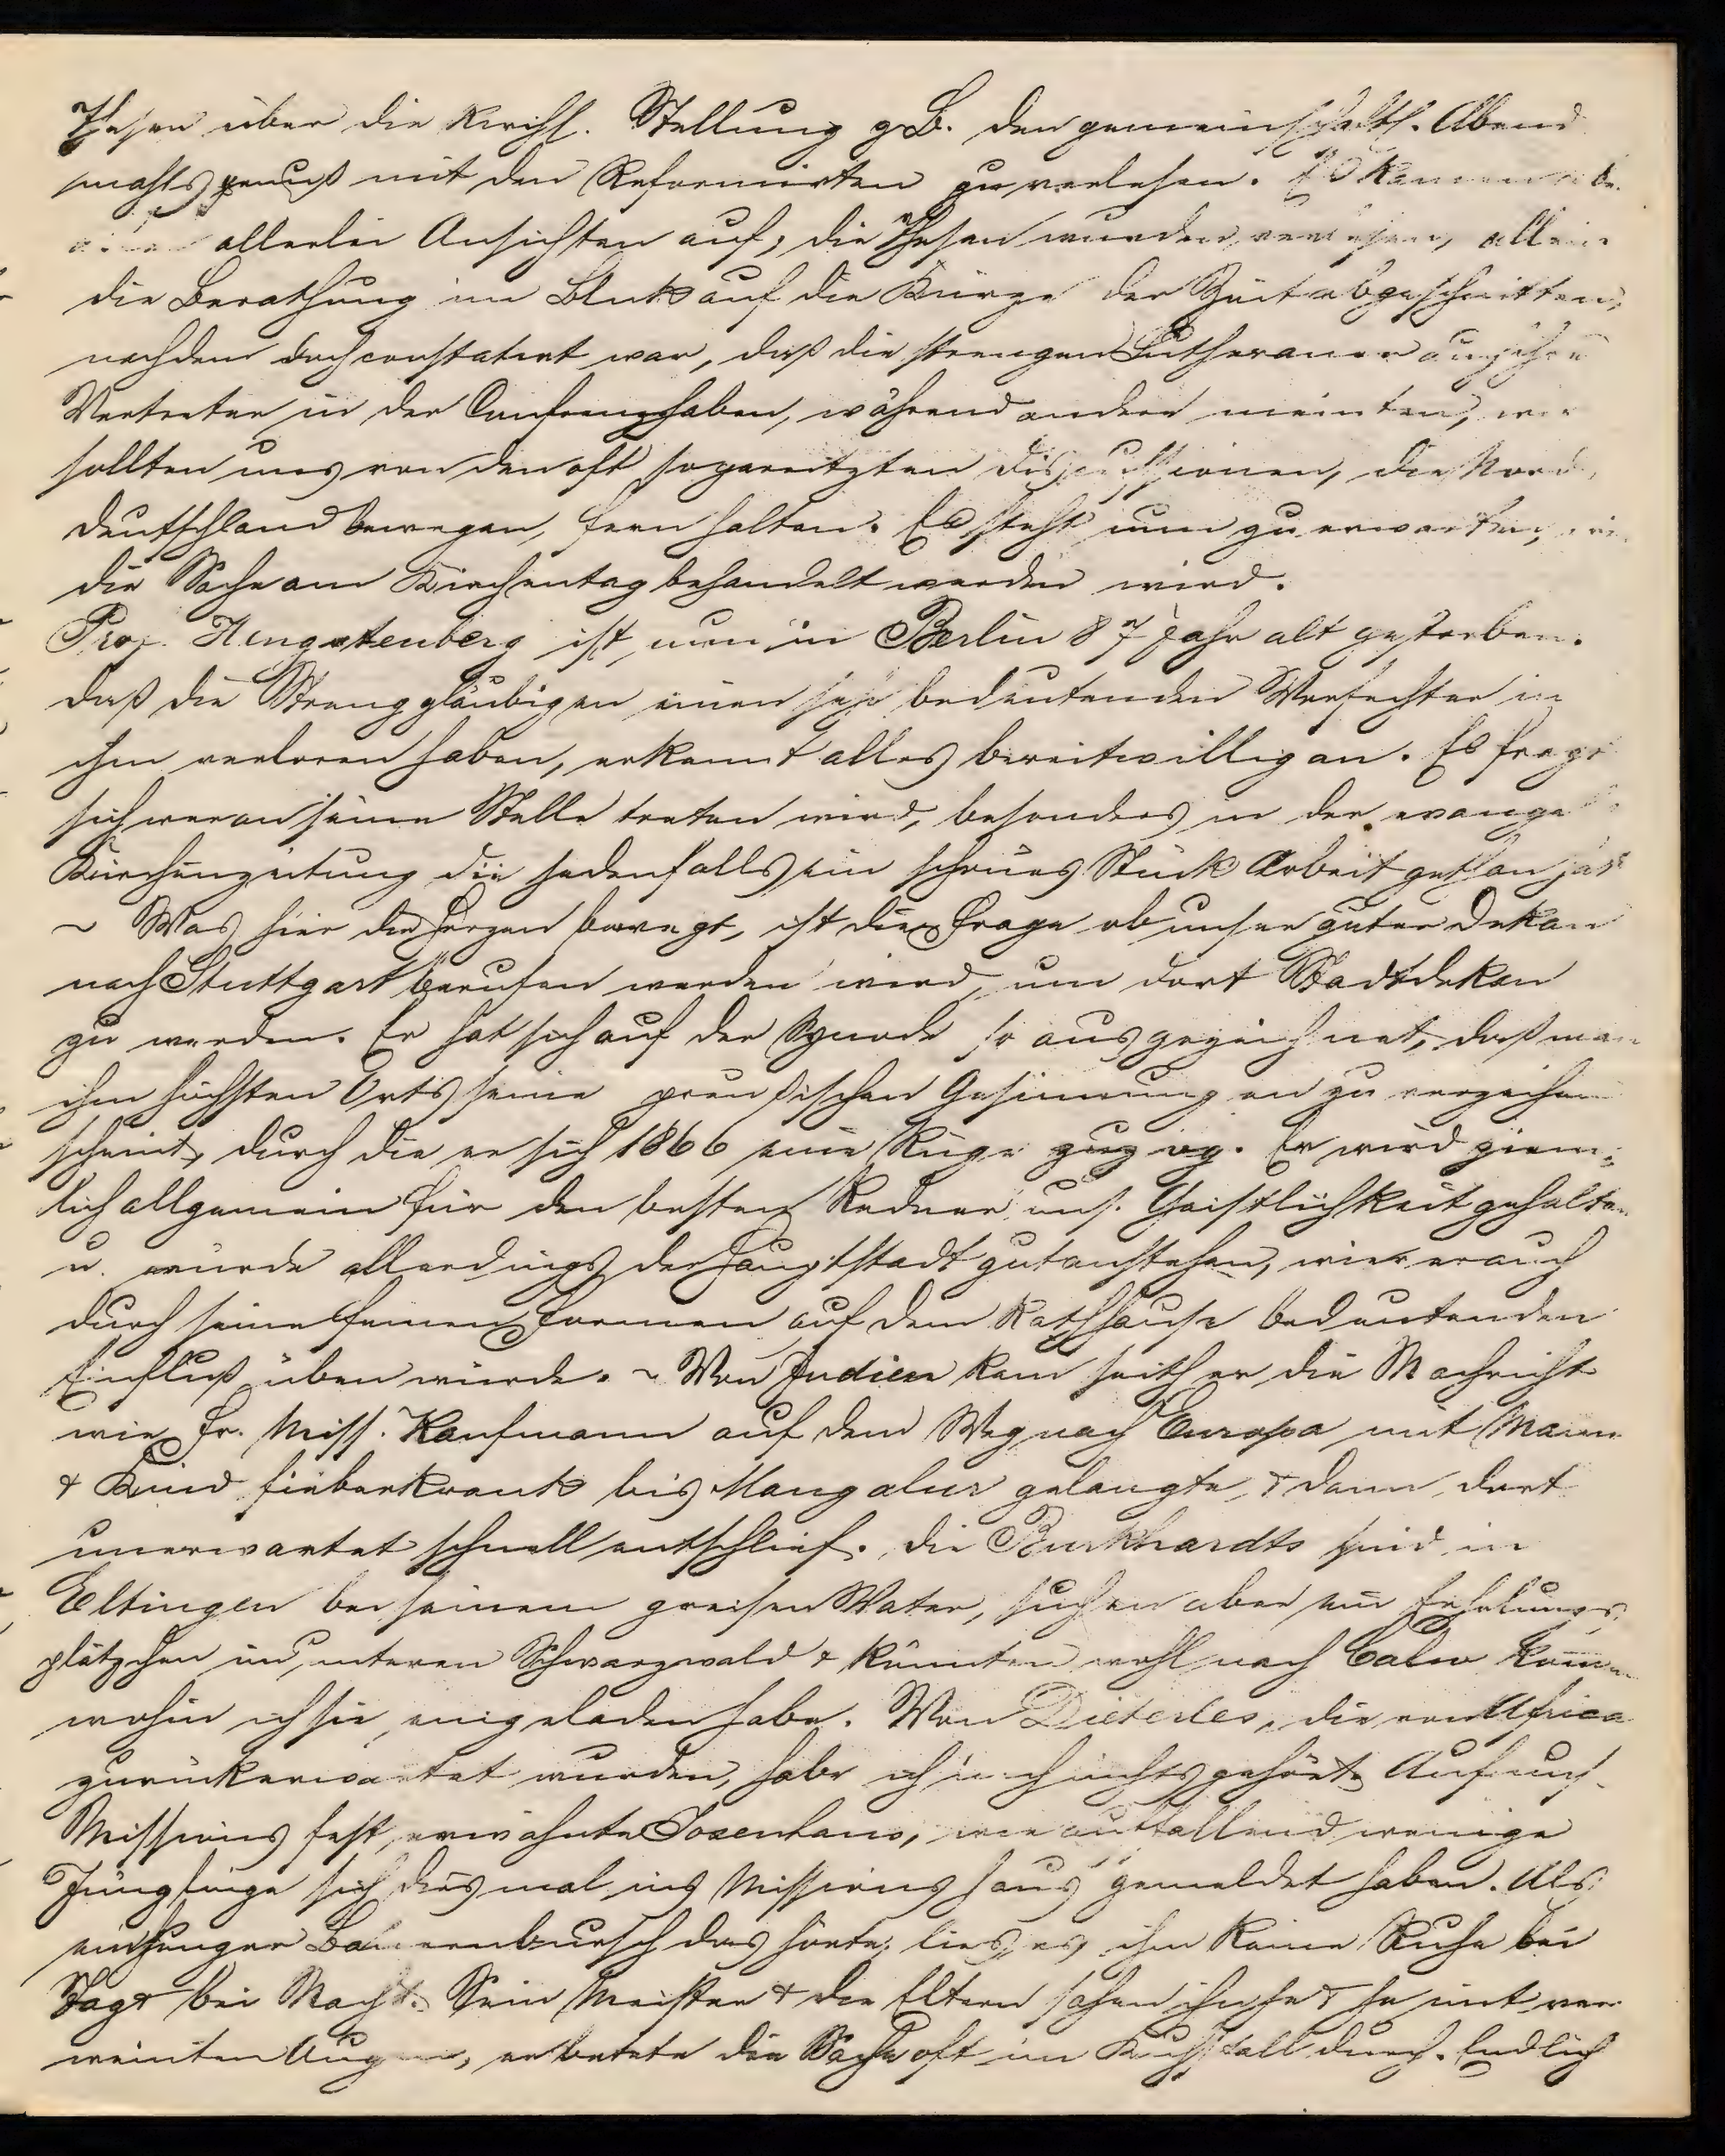 Thesen über die kirchl. Stellung z.B. den gemeinschaftl. Abend
mahlsgenuß mit den Reformirten zu verlesen. Es kamen
allerlei Ansichten auf, die Thesen wurden verlesen, allein
die Berathung im Blick auf die Kürze der Zeit abgeschnitten,
nachdem doch constatirt war, daß die strengen Lutheraner auch ihre
Vertreter in der Conferenz haben, während andere meinten, wir
sollten uns von den oft so gereitzten Discussionen, die Nord
deutschland bewegen, fern halten. Es steht nun zu erwarten, wie
die Sache am Kirchentag behandelt werden wird.
Prof. Hengstenberg ist nun in Berlin 87 Jahr alt gestorben.
daß die Strenggläubigen einen sehr bedeutenden Verfechter in
ihm verloren haben, erkennt alles bereitwillig an. Es fragt
sich wer an seine Stelle treten wird, besonders in der evangel
Kirchenzeitung die jedenfalls ein schönes Stück Arbeit gethan hat
~ Was hier die Herzen bewegt, ist die Frage ob unser guter Dekan
nach Stuttgart berufen werden wird, um dort Stadtdekan
zu werden. Er hat sich auf der Synode so ausgezeichnet, daß man
ihm höchsten Orts seine preußischen Gesinnungen zu verzeihen
scheint, durch die er sich 1866 eine Rüge zuzog. Er wird ziem-
lich allgemein für den besten Redner uns. Geistlichkeit gehalten
u. würde allerdings der Hauptstadt gut anstehen, wie er auch
durch seine feinen Formen auf dem Rathhause bedeutenden
Einfluß üben würde. ~ Von Indien kam seither die Nachricht
wie Fr. Miss. Kaufmann auf dem Weg nach Europa mit Mann
& Kind fieberkrank bis Mangalur gelangte, & dann dort
unerwartet schnell entschlief. Die Burkhardts sind in
Eltingen bei seinem greisen Vater, suchen aber ein Erholungs
plätzchen im unteren Schwarzwald & könnten wohl nach Calw kommen
wohin ich sie eingeladen habe. Von Dieterles, die von Africa
zurückerwartet wurden, habe ich noch nichts gehört. Auf uns.
Missionsfest erwähnte Josenhans, wie auffallend wenige
Jünglinge sich diesmal ins Missionshaus gemeldet haben. Als
ein junger Bauernbursch das hörte, ließ es ihm keine Ruhe bei
Tag & bei Nacht. Sein Meister & die Eltern sahen ihn je & je mit ver
weinten Augen, er betete die Sache oft im Kuhstall durch. Endlich